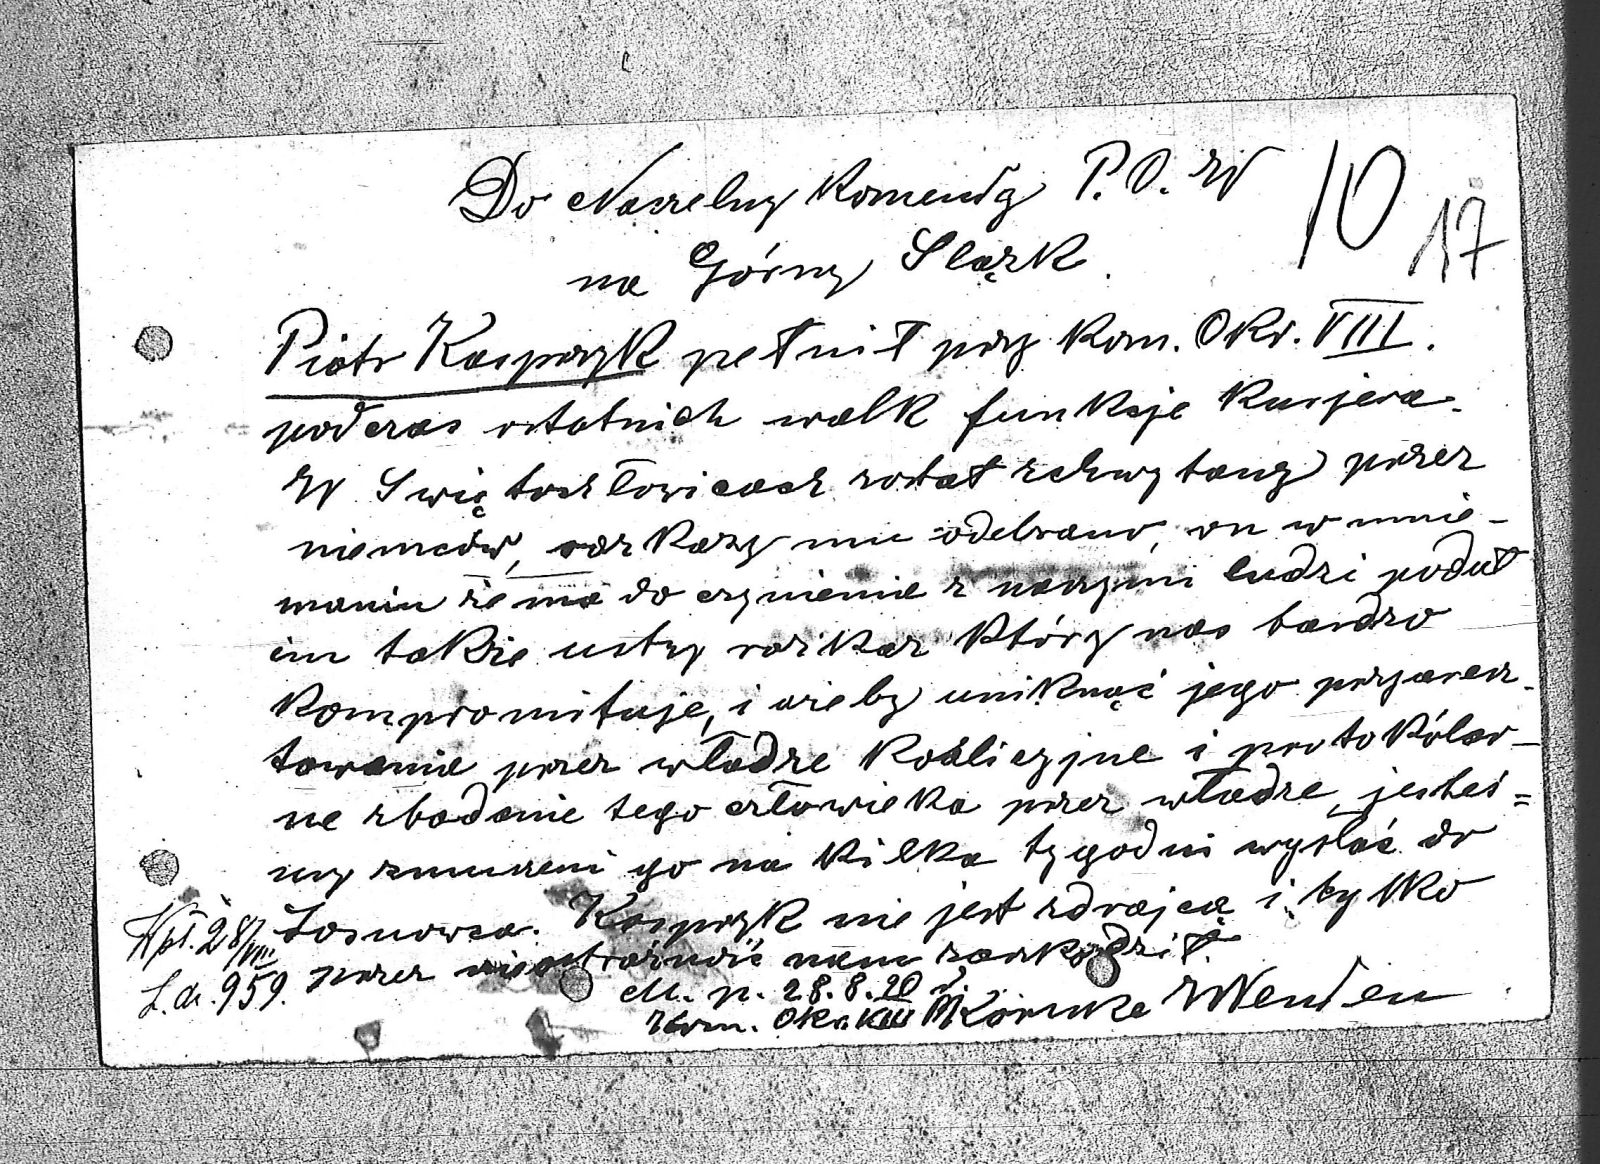 Do Naczelny Komendy P.O.W
na Górny Slązk.
10
17
Piotr Kasprzyk pełnił przy Kom. Okr. VIII.
podczas ostatnich walk funkcje Kurjera.
W Swiętochłowicach został schwytany przez
niemców, rozkazy mu odebrano, on w mnie-
maniu że ma do czynienie z naszymi ludzi podał
im takze ustny rozkaz który nas bardzo
kompromituje, i ażeby uniknąć jego przyaresz-
towania przez władze koalicyjne i protokólar-
ne zbadanie tego człowieka przez władze, jesteś=
my zmuszeni go na kilka tygodni wysłać do
Sosnowca. Kasprzyk nie jest zdrajcą i tylko
przez nieostrożność nam zaszkodził.
Wpł. 28/VIII
L.dz. 959.
M. p. 28.8.20 r.
Kom. Okr. VIII